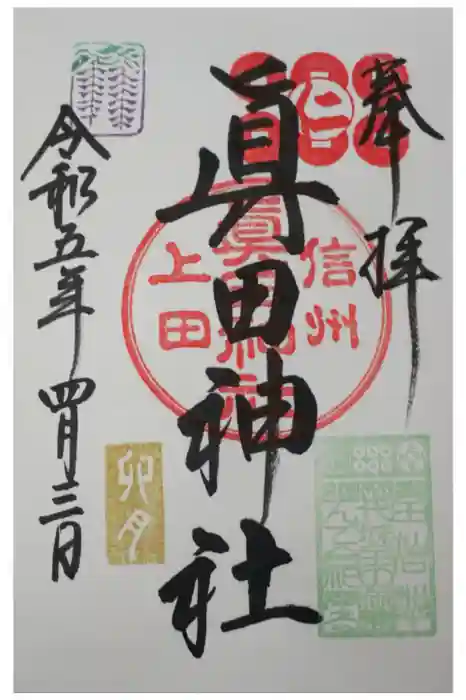 奉拝
信州
眞田神社
上田
眞田神社
卯月
令和五年四月三日